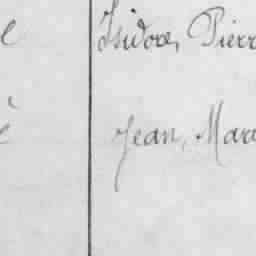 e Isidore, Pierr
é Jean, Mar